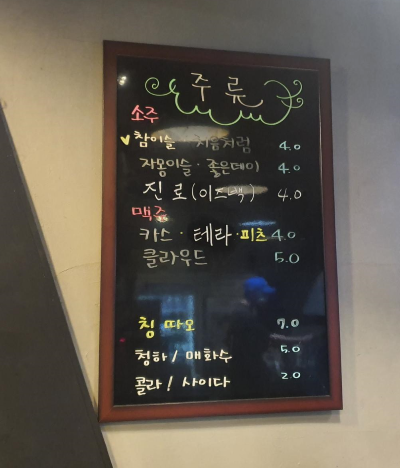 주류
소주
참이슬 · 처음처럼 4.0
자몽이슬 · 좋은데이 4.0
진로(이즈백) 4.0
맥주
카스 · 테라 · 피츠 4.0
클라우드 5.0
칭따오 7.0
청하 / 매화수 5.0
콜라 / 사이다 2.0